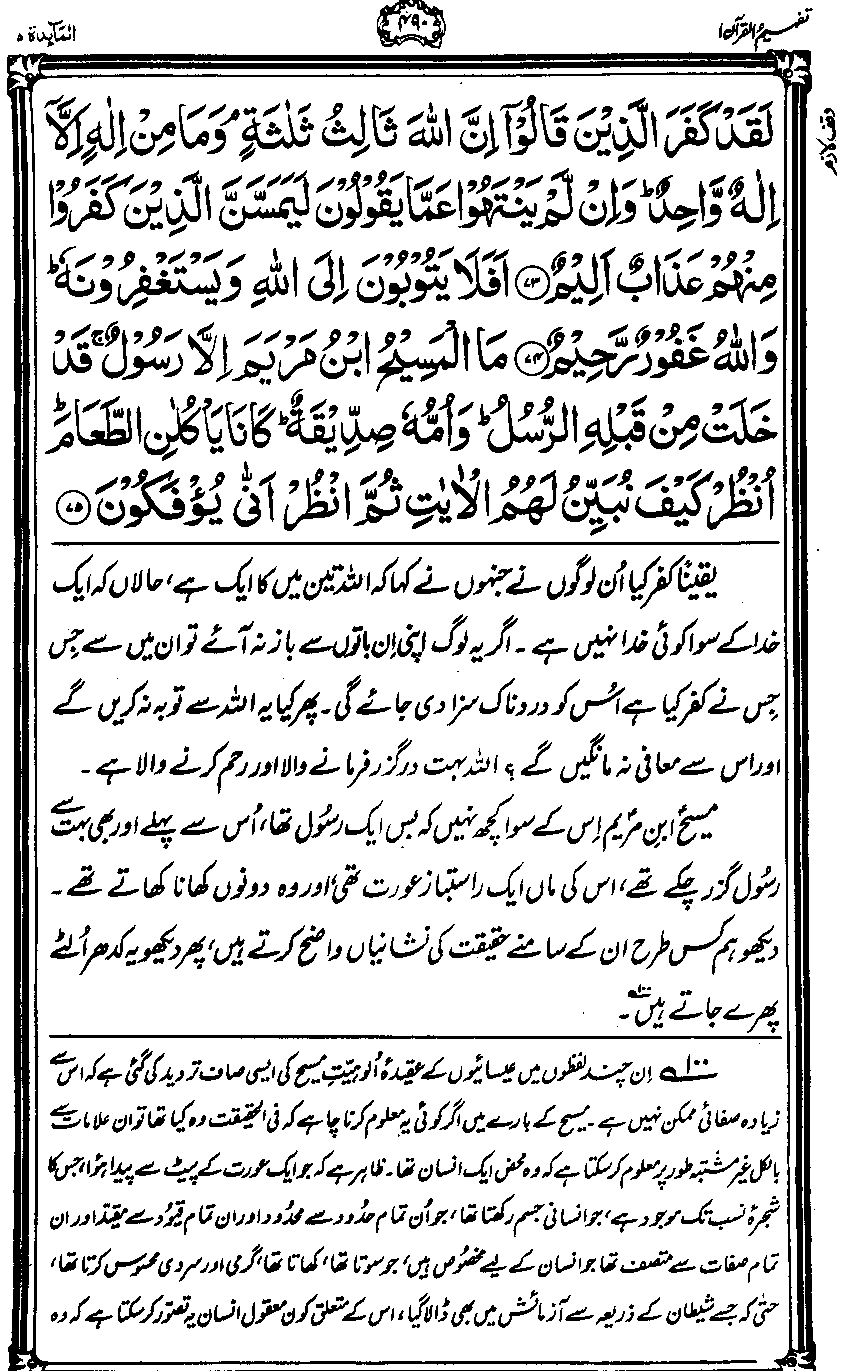 تفہیم القرآن ۱
۴۹۰
المآیدۃ ۵
وقف لازم
لَقَدْ كَفَرَ الَّذِيْنَ قَالُوْٓا اِنَّ اللّٰهَ ثَالِثُ ثَلٰثَةٍ ۘ وَمَا مِنْ اِلٰهٍ اِلَّآ
اِلٰهٌ وَّاحِدٌ ؕ وَاِنْ لَّمْ يَنْتَهُوْا عَمَّا يَقُوْلُوْنَ لَيَمَسَّنَّ الَّذِيْنَ كَفَرُوْا
مِنْهُمْ عَذَابٌ اَلِيْمٌ ﴿۷۳﴾ اَفَلَا يَتُوْبُوْنَ اِلَى اللّٰهِ وَيَسْتَغْفِرُوْنَهٗ ؕ
وَاللّٰهُ غَفُوْرٌ رَّحِيْمٌ ﴿۷۴﴾ مَا الْمَسِيْحُ ابْنُ مَرْيَمَ اِلَّا رَسُوْلٌ ۚ قَدْ
خَلَتْ مِنْ قَبْلِهِ الرُّسُلُ ؕ وَاُمُّهٗ صِدِّيْقَةٌ ؕ كَانَا يَاْكُلٰنِ الطَّعَامَ ؕ
اُنْظُرْ كَيْفَ نُبَيِّنُ لَهُمُ الْاٰيٰتِ ثُمَّ انْظُرْ اَنّٰى يُؤْفَكُوْنَ ﴿۷۵﴾
یقینًا کفر کیا اُن لوگوں نے جنہوں نے کہا کہ اللہ تین میں کا ایک ہے، حالاں کہ ایک
خدا کے سوا کوئی خدا نہیں ہے ۔ اگر یہ لوگ اپنی اِن باتوں سے باز نہ آئے تو ان میں سے جِس
جِس نے کفر کیا ہے اُس کو دردناک سزا دی جائے گی ۔ پھر کیا یہ اللہ سے توبہ نہ کریں گے
اور اس سے معافی نہ مانگیں گے ؟ اللہ بہت درگزر فرمانے والا اور رحم کرنے والا ہے ۔
مسیحؑ ابنِ مریمؑ اِس کے سوا کچھ نہیں کہ بس ایک رسُول تھا، اُس سے پہلے اور بھی بہت سے
رسُول گزر چکے تھے، اس کی ماں ایک راستباز عورت تھی، اور وہ دونوں کھانا کھاتے تھے ۔
دیکھو ہم کس طرح ان کے سامنے حقیقت کی نشانیاں واضح کرتے ہیں، پھر دیکھو یہ کدھر اُلٹے
پھرے جاتے ہیں۱۰۰ ۔
۱۰۰ اِن چند لفظوں میں عیسائیوں کے عقیدۂ اُلوہیّتِ مسیح کی ایسی صاف تردید کی گئی ہے کہ اس سے
زیادہ صفائی ممکن نہیں ہے ۔ مسیح کے بارے میں اگر کوئی یہ معلوم کرنا چاہے کہ فی الحقیقت وہ کیا تھا تو ان علامات سے
بالکل غیر مشتبہ طور پر معلوم کر سکتا ہے کہ وہ محض ایک انسان تھا ۔ ظاہر ہے کہ جو ایک عورت کے پیٹ سے پیدا ہوا، جس کا
شجرۂ نسب تک موجود ہے، جو انسانی جسم رکھتا تھا، جو اُن تمام حدُود سے محدُود اور ان تمام قیُود سے مقیّد اور ان
تمام صفات سے متصف تھا جو انسان کے لیے مخصُوص ہیں، جو سوتا تھا، کھاتا تھا، گرمی اور سردی محسوس کرتا تھا،
حتّٰی کہ جسے شیطان کے ذریعہ سے آزمائش میں بھی ڈالا گیا، اس کے متعلق کون معقول انسان یہ تصّور کر سکتا ہے کہ وہ